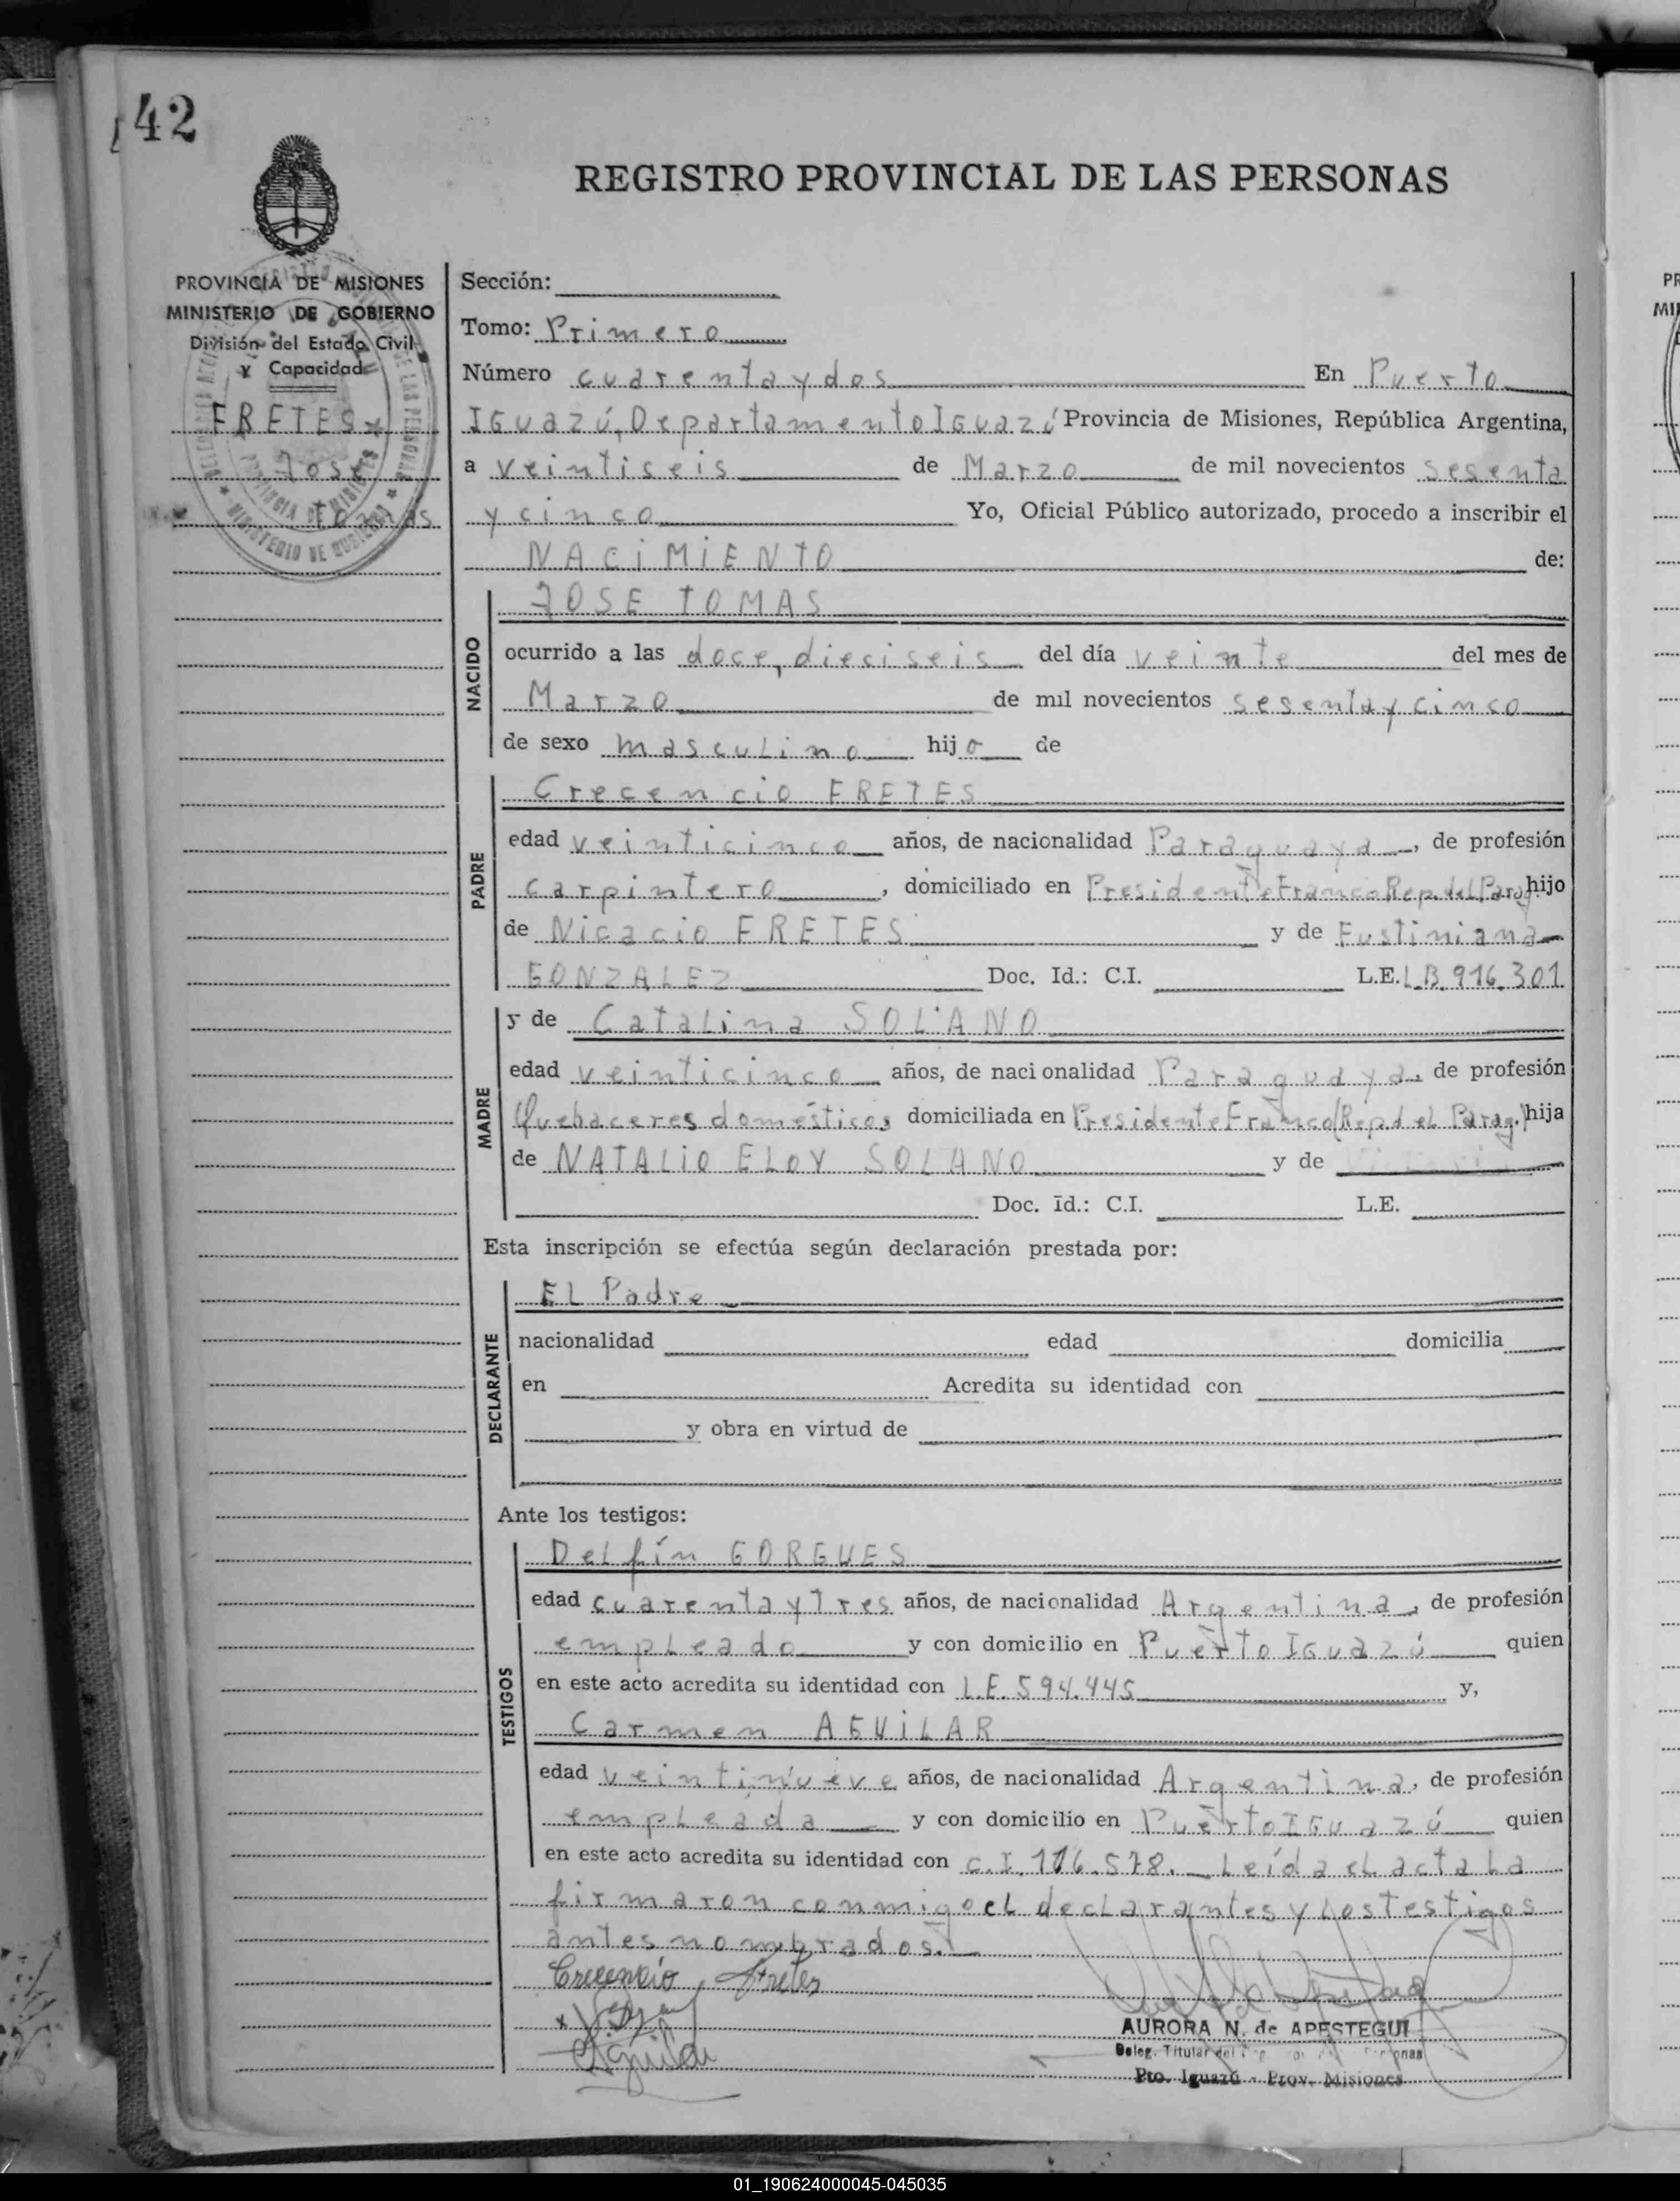 42
REGISTRO PROVINCIAL DE LAS PERSONAS
PROVINCIA DE MISIONES
MINISTERIO DE GOBIERNO
División del Estado Civil
y Capacidad
FRETES
José
Tomás
Sección:
Tomo: Primero
Número cuarenta y dos En Puerto
IGuazú, Departamento IGuazú Provincia de Misiones, República Argentina,
a veintiseis de Marzo de mil novecientos sesenta
y cinco Yo, Oficial Público autorizado, procedo a inscribir el
NACIMIENTO de:
NACIDO
JOSE TOMAS
ocurrido a las doce, dieciseis del día veinte del mes de
Marzo de mil novecientos sesenta y cinco
de sexo masculino hijo de
PADRE
Crecencio FRETES
edad veinticinco años, de nacionalidad Paraguaya, de profesión
carpintero, domiciliado en Presidente Franco Rep. del Parag hijo
de Nicacio FRETES y de Fustiniana
GONZALEZ Doc. Id.: C.I. L.E. 1.B.916.301
MADRE
y de Catalina SOLANO
edad veinticinco años, de nacionalidad Paraguaya, de profesión
Quehaceres domésticos domiciliada en Presidente Franco (Rep. del Parag.) hija
de NATALIO ELOY SOLANO y de
Doc. Id.: C.I. L.E.
Esta inscripción se efectúa según declaración prestada por:
DECLARANTE
EL Padre
nacionalidad edad domicilia
en Acredita su identidad con
y obra en virtud de
Ante los testigos:
TESTIGOS
Delfín GORGUES
edad cuarenta y Tres años, de nacionalidad Argentina, de profesión
empleado y con domicilio en Puerto IGuazú quien
en este acto acredita su identidad con L.E. 594.445 y,
Carmen AGUILAR
edad veintinueve años, de nacionalidad Argentina, de profesión
empleada y con domicilio en Puerto IGuazú quien
en este acto acredita su identidad con C.I. 116.578. Leída el acta la
firmaron conmigo el declarantes y los testigos
antes nombrados.
Crecencio Fretes
AURORA N. de APESTEGUI
Deleg. Titular del
Pto. Iguazú - Prov. Misiones
01_190624000045-045035